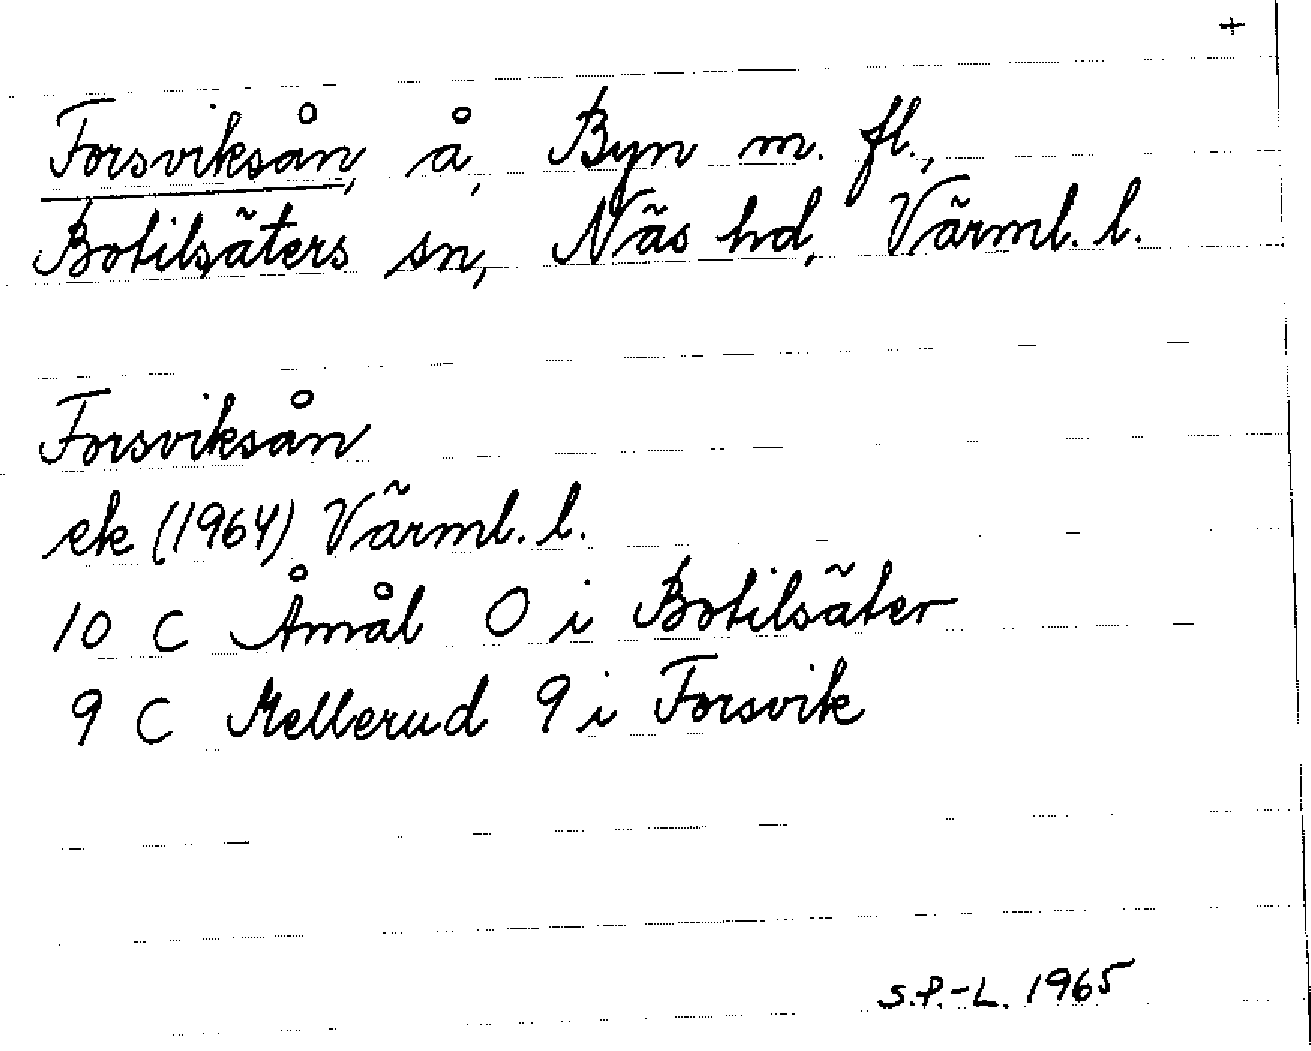 +
Forsviksån, å, Byn m. fl.,
Botilsäters sn, Näs hd, Värml. l.
Forsviksån
ek (1964) Värml. l.
10 C Åmål 0 i Botilsäter
9 C Mellerud 9 i Forsvik
S.P.-L. 1965